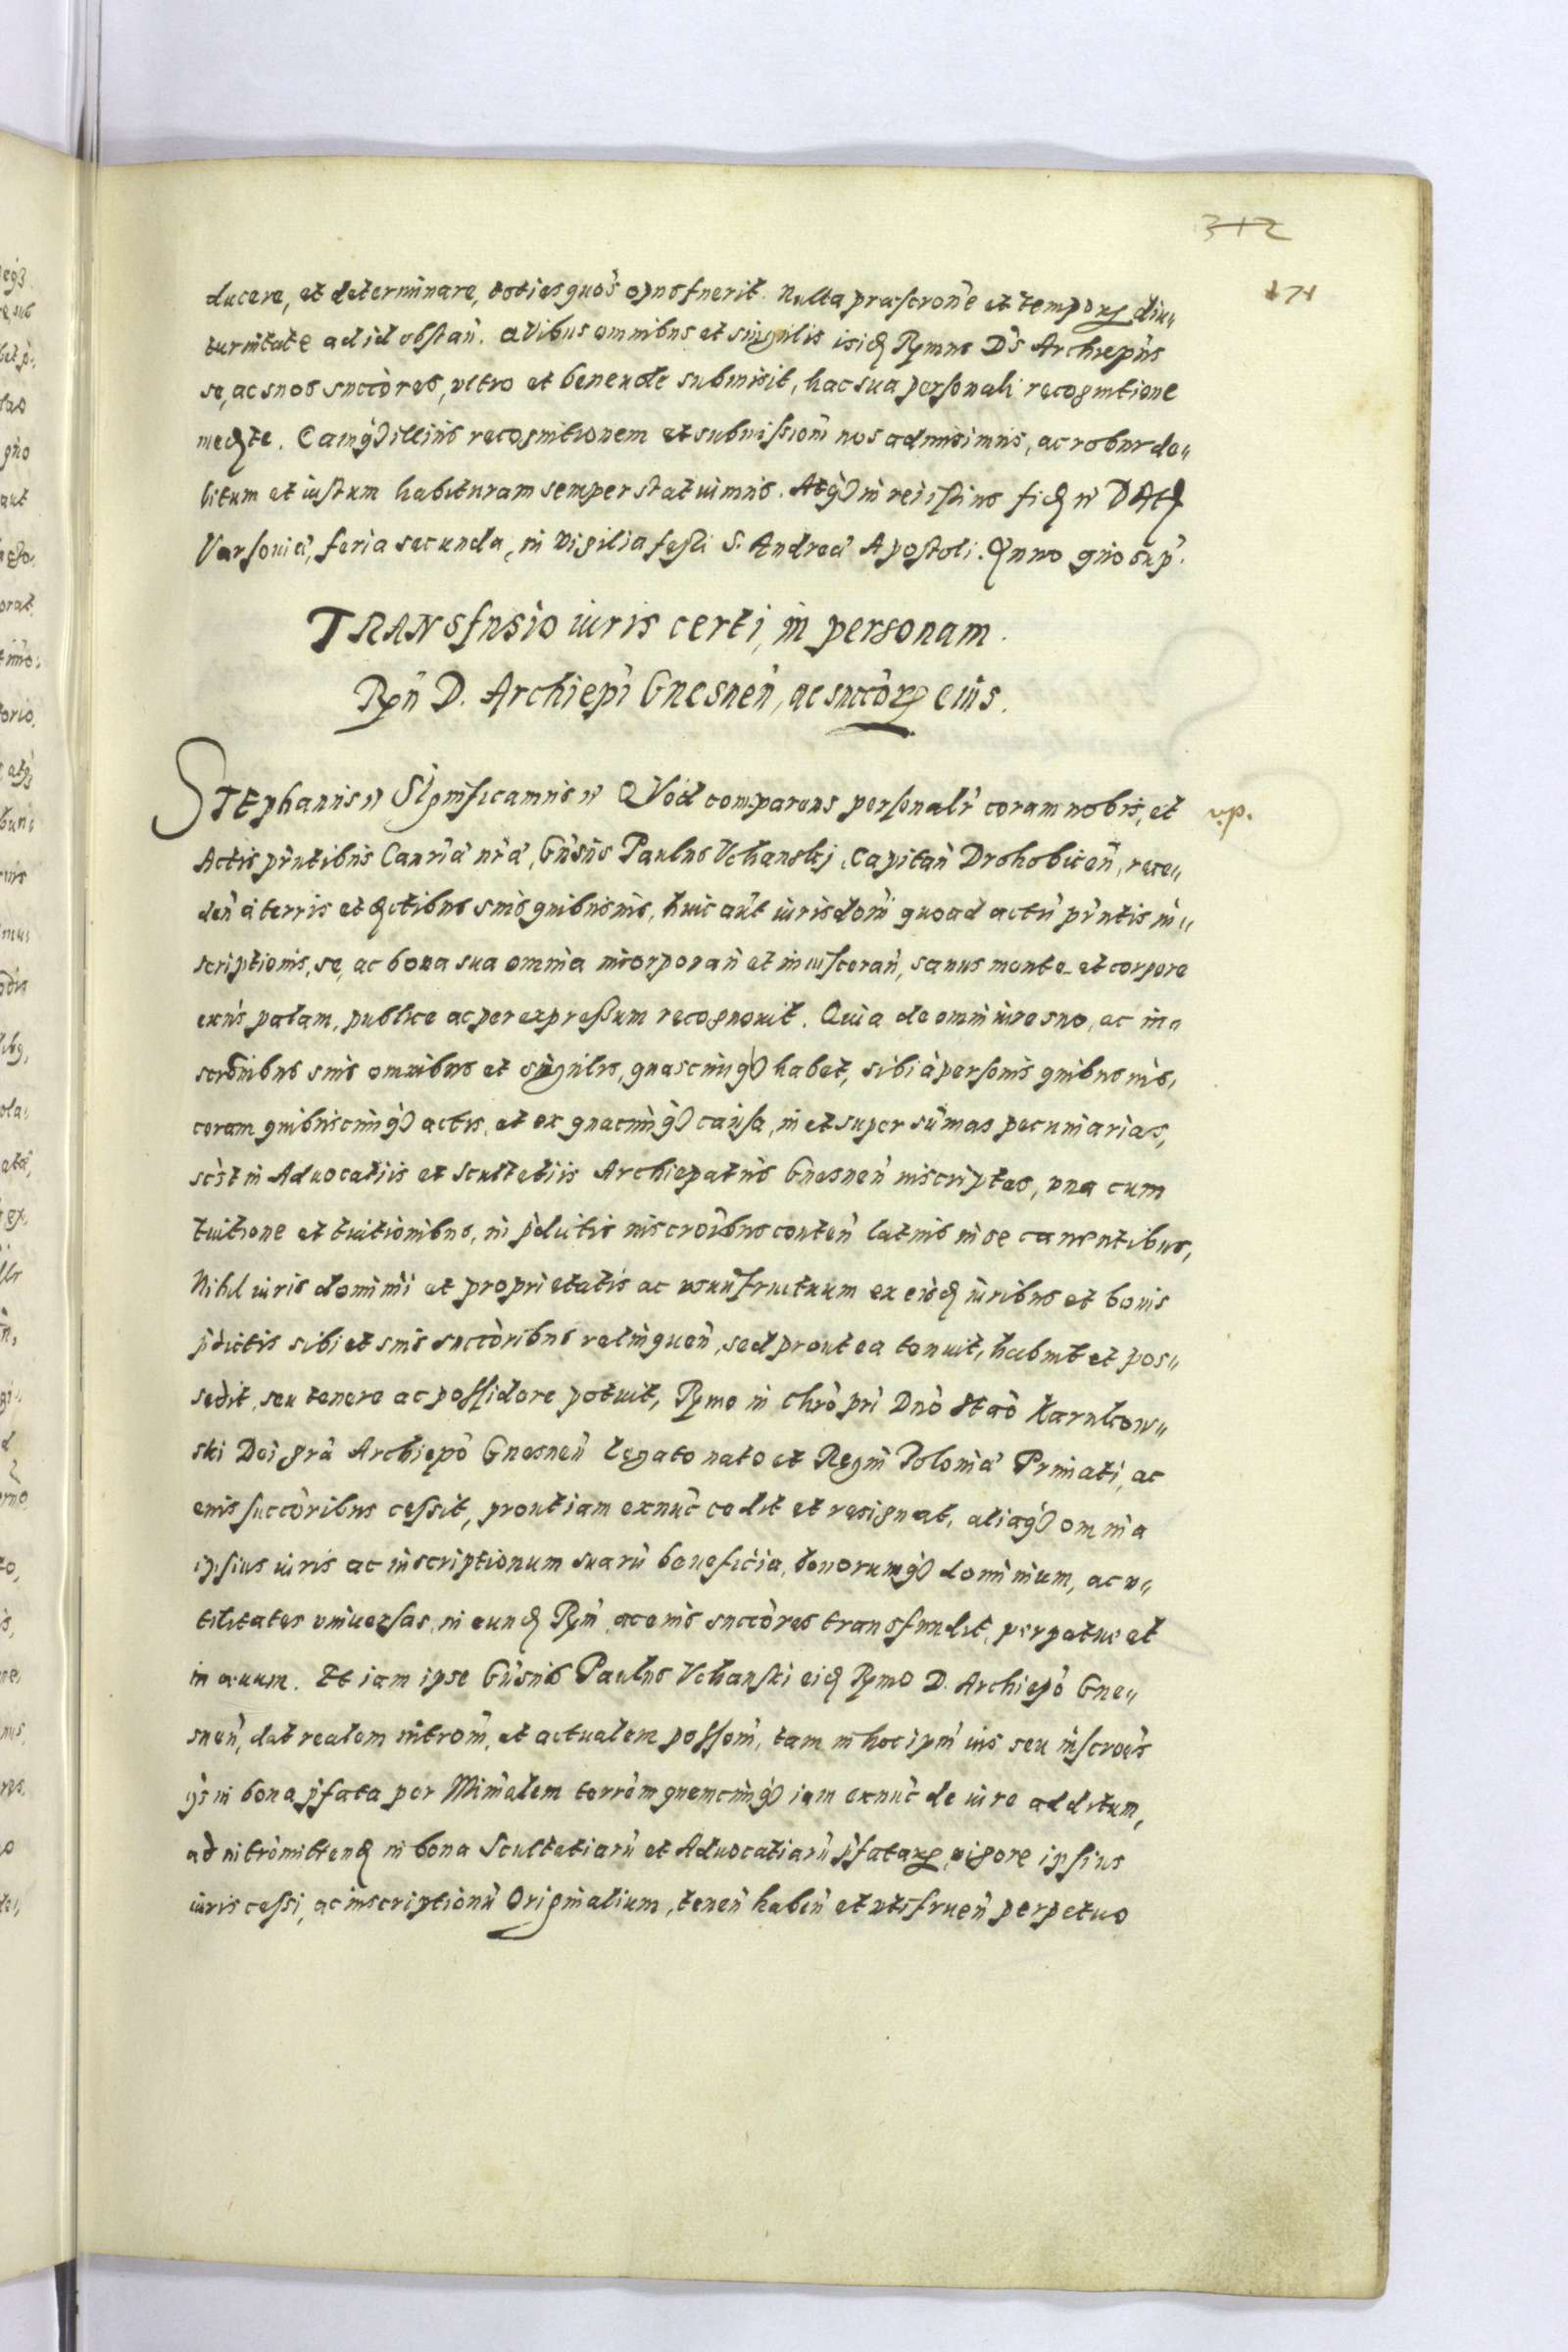 312
171
ducere, et determinare, toties quos opus fuerit. Nulla præscrone et temporum diu„
turnitate ad id obstan. a Vibus omnibus et singulis isid Rymus Ds Archiepus
se, ac suos succores, vltro et beneuole submisit, hac sua personali recognitione
med te. Eamqȝ illius recognitionem et submissiom nos admisimus, ac robur de„
bitum et iustum habituram semper statuimus. Atqȝ in rei istius fid n DAtt
Varsouiæ, feria secunda, in vigilia festi S. Andreæ Apostoli. Anno quo sup.
TRANSfusio iuris certi, in personam
Rmn D. Archiepi Gnesnen, ac succorum eius.
STEphanus n Significamus n QVod comparens personalr coram nobis, et
Actis pntibus Canriæ nræ, Gnsus Paulus Vchanskj, Capitan Drohobicen, rece„
den a terris et dctibus suis quibusuis, huic aut iurisdoni quoad actu pntis in„
scriptionis, se, ac bona sua omnia incorporan et inuisceran, sanus mente et corpore
exns palam, publice ac per expressum recognouit. Quia de omni iure suo, ac in„
scronibus suis omnibus et singulis, quascunqȝ habet, sibi a personis quibusuis,
coram quibuscunqȝ actis, et ex quacunqȝ causa, in et super sumas pecuniarias,
scst in Aduocatiis et Scultetiis Archiepatus Gnesnen inscriptas, vna cum
tuitione et tuitionibus, in pdictis inscronibus conten latius in se canentibus,
Nihil iuris dominii et proprietatis ac vsunfructuum ex eisd iuribus et bonis
pdictis sibi et suis succoribus relinquen, sed prout ea tenuit, habuit et pos„
sedit, seu tenere ac possidere potuit, Rymo in Chro pri Dno Stao Karnkow„
ski Dei gra Archiepo Gnesnen legato nato et Regni Poloniæ Primati, ac
eius succoribus cessit, prout iam exnunc cedit et resignat, aliaqȝ omnia
ipsius iuris ac inscriptionum suaru beneficia, bonorumqȝ dominium, ac v„
tilitates vniuersas, in eund Rym, ac eius succores transfundit, perpetue et
in æuum. Et iam ipse Gnsus Paulus Vchanski eid Rymo D. Archiepo Gne„
snen, dat realem introm, et actualem possom, tam in hoc ipm ius seu inscroes
qs in bona pfata per Minalem terrem quemcunqȝ iam exnunc de iure additum,
ad intromittend in bona Scultetiaru et Aduocatiaru pfatarum, vigore ipsius
iuris cessi, ac inscriptionu Originalium, tenen haben et vtifruen perpetuo